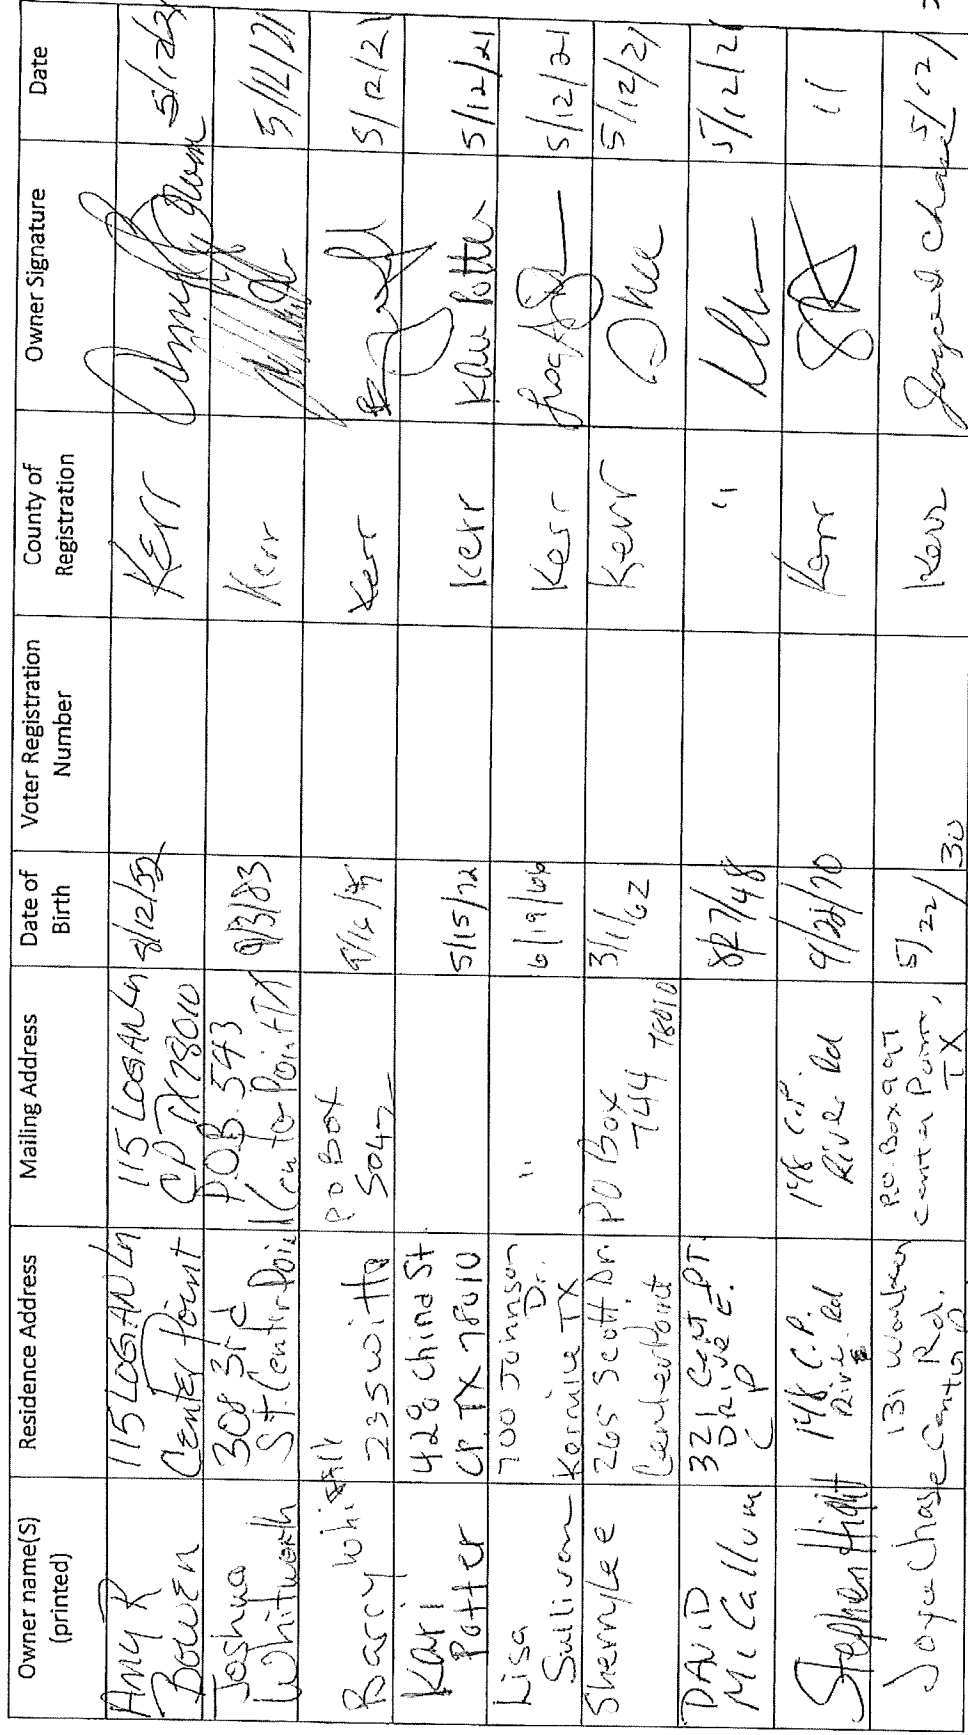 Owner name(S) (printed) | Residence Address | Mailing Address | Date of Birth | Voter Registration Number | County of Registration | Owner Signature | Date
Amy R Bowen | 115 LOGAN Ln Center Point | 115 LOGAN Ln CP TX 78010 | 8/12/52 | | Kerr | |
Joshua Whitworth | 308 3rd St. Center Point | P.O.B. 543 Center Point TX | 9/3/83 | | Kerr | | 5/12/21
Barry | 235 Witt | PO Box | | | Kerr | | 5/12/21
Kari Potter | 428 China St. CP. TX 78010 | | 5/15/72 | | Kerr | Kari Potter | 5/12/21
Lisa Sullivan | 700 Johnson Dr. Kerrville TX | " | 6/19/66 | | Kerr | | 5/12/21
Sherrylee | 265 Scott Dr. CenterPoint | PO Box 744 78010 | 3/1/62 | | Kerr | | 5/12/21
DAVID McCallum | 321 Cent PT. DRIVE E. CP | | 8/27/48 | | " | | 5/12/21
Stephen Hight | 148 C.P. River Rd | 148 C.P. River Rd | | | Kerr | | "
Joyce Chase | 131 Center Rd. | P.O. Box 997 Center Point, TX | 5/22/30 | | Kerr | Joyce Chase | 5/12/